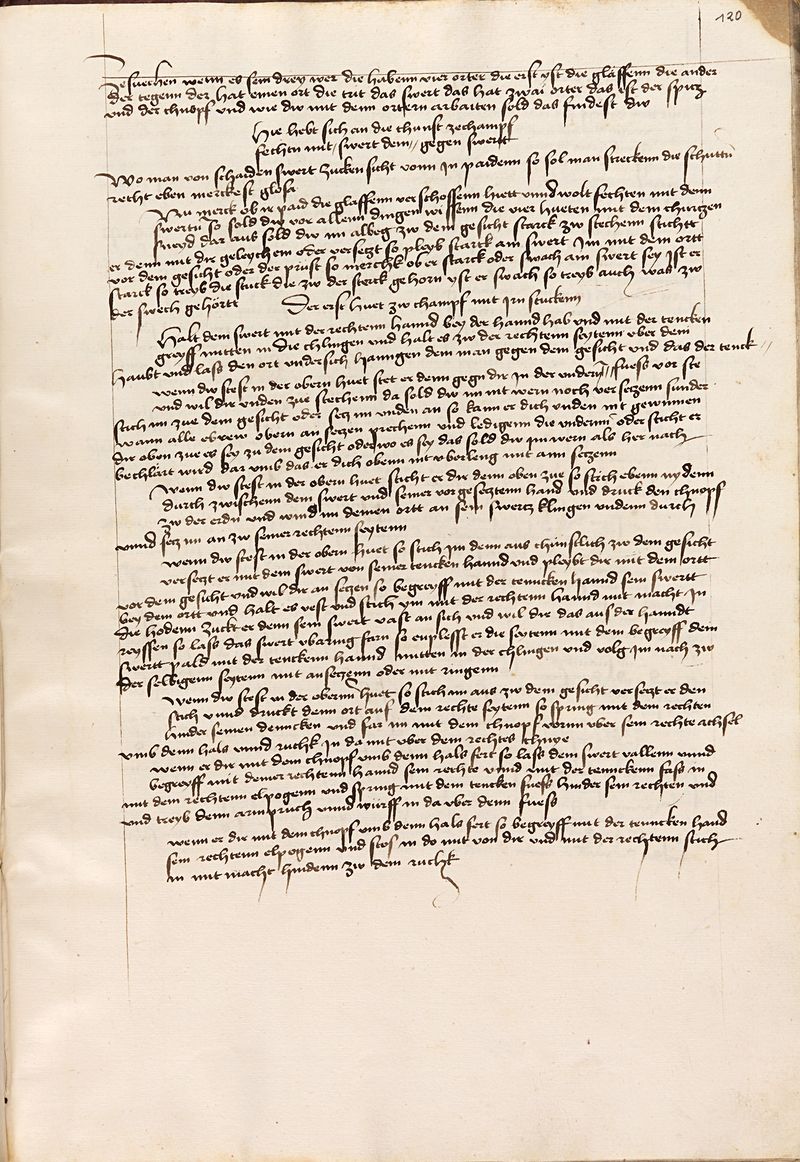 120
Besuechen wenn es sein drey wer die habenn vier orter die erst yst die gläffenn die ander
der tegenn der hat einen ort die trit das swert das hat zwai orter das est der spicz
und der chnopf und wie dw mit denn ortern arbaiten sold das findest dw
Hie hebt sich an die chunst ze champf
fechtn mit swert dem gegen swertt
Wo man von schaiden swert zucken sicht vonn In paidenn so sol man streckenn die schuttn
recht eben merckest glosa
Nu merck ob ir paid die glaffenn verschossenn hiett unnd wolt fechten mit denn
swertn so sold dw vor allenn dingen wissenn die vier hueten mit dem churczen
sweyd dar aus sold dw im albeg zw dem gesicht starck zw stechenn stichtt
er denn mit dir geleych ein oder versetzt so pleyb starck am swert Im mit dem ortt
vor dem gesicht oder der prust so merchk ob er starck oder swach am swert sey Ist er
starck so treyb die stuck die zw der sterck gehorn yst er swach so treyb auch was zw
der swech gehörtt Der erst huet zw champf mit irn stuckenn
Halt dem swert mit der rechtenn hannd bey der hannd hab und mit der tencken
greyff mitten in die chlingen und halt es zw der rechtenn seytenn uber dem
haubt und lass den ort undersich hanngen dem man gegen dem gesicht und das der tenck
fuess vor ste
wenn dw stest in der obern huet stet er denn gegn dir In der undern
und wil dir unden zue stechenn da sold dw im nit wern noch versetzenn sunder
stich im zue dem gesicht oder secz im unden an so kann er dich unden nit gewinnen
wann alle ebrew obern an seczen prechenn und ledigenn die undernn oder sticht er
dir oben zue es sey zu dem gesicht oder wo es sey das sold dw im wern als her nach
bechlärt wird dar umb das er dich obenn nit uberleng mit ann seczenn
Wenn dw stest in der obern huet sticht er dir denn oben zue so stich ebenn nydenn
durch zwischenn dem swert und seiner vorgesecztenn hand und druck den chnopf
zw der erdn und wind im deinen ortt an sein swertz klingen undenn durch
unnd secz im an zw seiner rechtenn seytenn
wenn dw stest in der obern huet so stich im denn aus chunstlich zw dem gesicht
versetzt er mit dem swert von seiner tencken hannd und pleybt dir mit dem ortt
vor dem gesicht und wil dir an seczen so begreyff mit der tenncken hannd sein swertt
bey dem ortt und halt es vest und stich ym mit der rechtenn hannd mit macht In
die hodenn zuckt er denn sein swert vast an sich und wil die das aus der hanndt
reyssen so lass das swert ubaring farn so enplesst er die seytenn mit dem begreyff dem
swertt pald mit der tenckenn hannd mitten in der chlingen und volg Im nach zw
der selbigenn seytenn mit anseczenn oder mit ringenn
Wenn dw stest in der obernn huet so stich im aus zw dem gesicht versetzt er den
stich unnd druckt denn ort auf dem rechte seytenn so spring mit dem rechten
hinder seinen dencken und far im mit dem chnopf vornn uber sein rechte achsel
umb denn hals unnd ruchk In da mit uber dem rechtes chnye
wenn er dir mit dem chnopf umb denn hals fert so lass dem swert vallenn unnd
begreyff mit deiner rechtenn hannd sein rechte unnd mit der tenncken fass in
mit dem rechtenn elpogenn und spring mit dem tencken fuess hinder sein rechten und
und treyb denn arm pruch unnd wurff in da uber denn fuess
wenn er dir mit dem chnopf umb denn hals fert so begreyff mit der tenncken hand
sein rechtenn elpogenn und stos in do mit von dir und mit der rechtenn stich
in mit macht hindenn zw dem ruchk